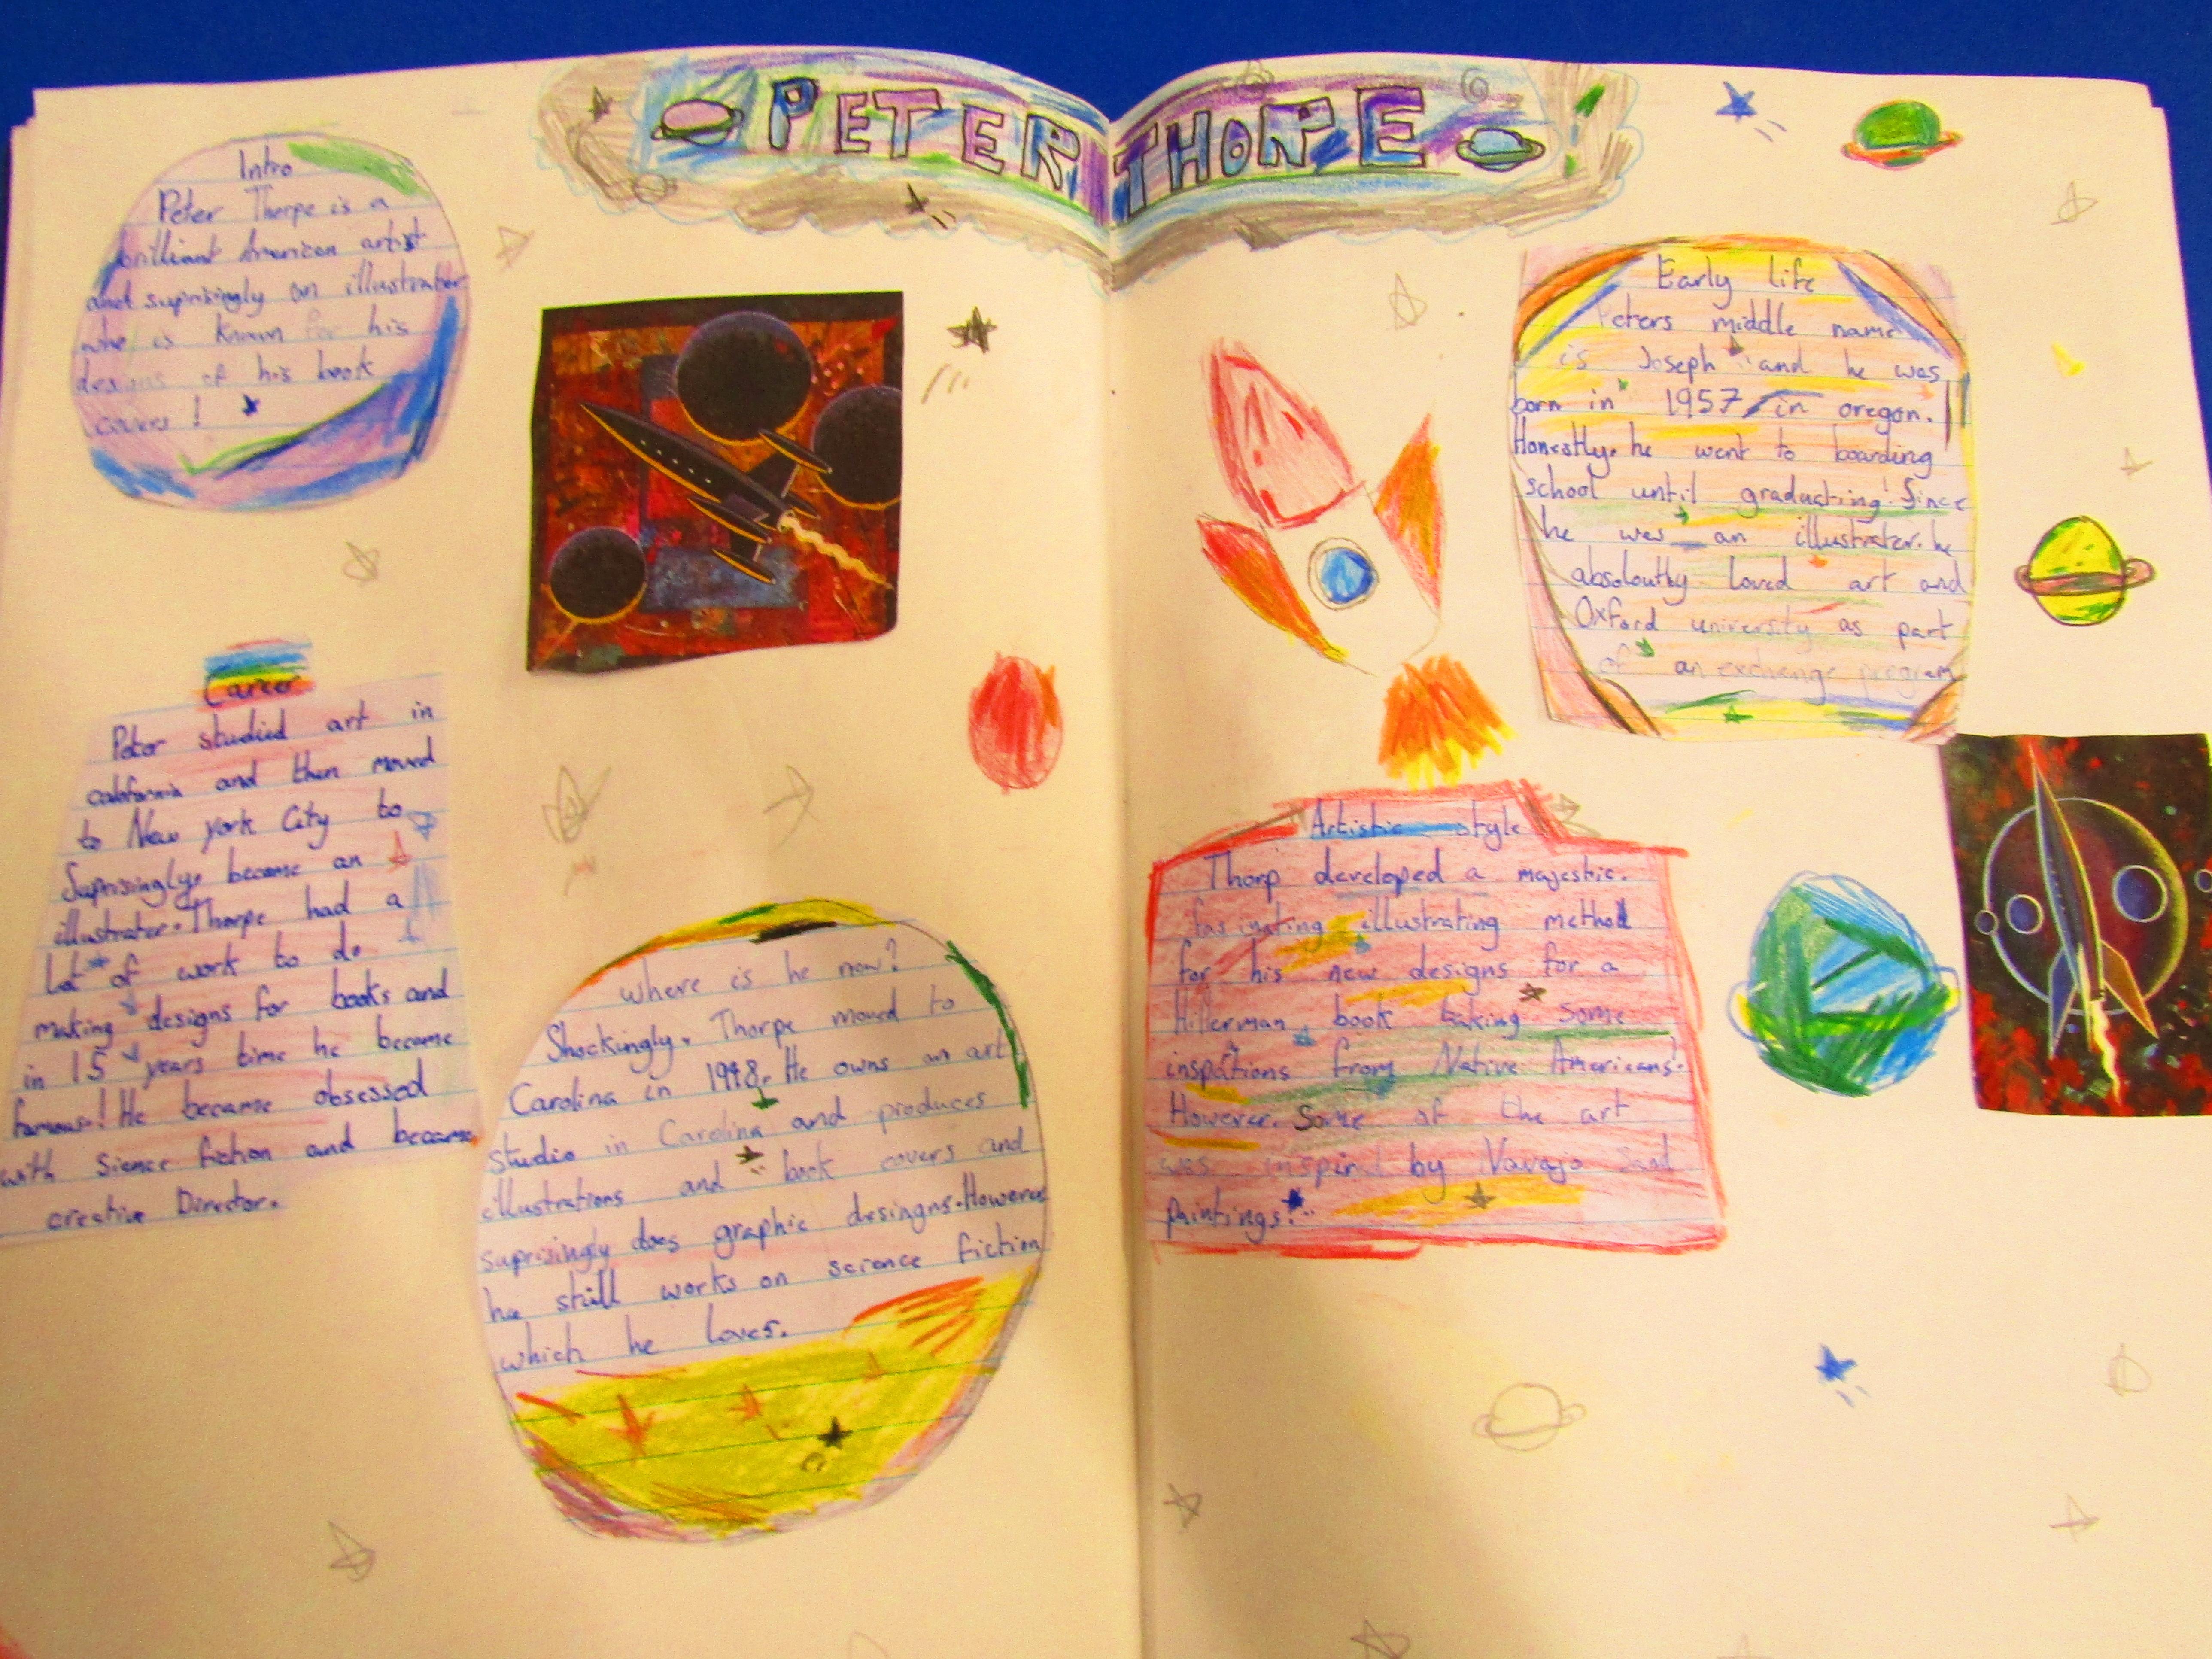 PETER THORPE
Intro
Peter Thorpe is a
brilliant American artist
and suprisingly an illustrator
who is known for his
designs of his book
covers!
Career
Peter studied art in
california and then moved
to New york City to
Suprisingly, become an
illustrater. Thorpe had a
lot of work to do
making designs for books and
in 15 years time he became
famous! He became obsessed
with sience fiction and became
creative Director.
Where is he now?
Shockingly, Thorpe moved to
Carolina in 1998. He owns an art
studio in Carolina and produces
illustrations and book covers and
suprisingly does graphic desingns. However
he still works on science fiction
which he loves.
Early life
Peters middle name
is Joseph and he was
born in 1957, in oregon.
Honestly, he went to boarding
school until graduating! Since
he was an illustrater, he
absoloutly loved art and
Oxford university as part
of an exchange program
Artistic style
Thorp developed a majestic,
fasinating illustrating method
for his new designs for a
Hillerman book taking some
inspations from Native Americans!
However, some of the art
was inspired by Navajo Sand
paintings!